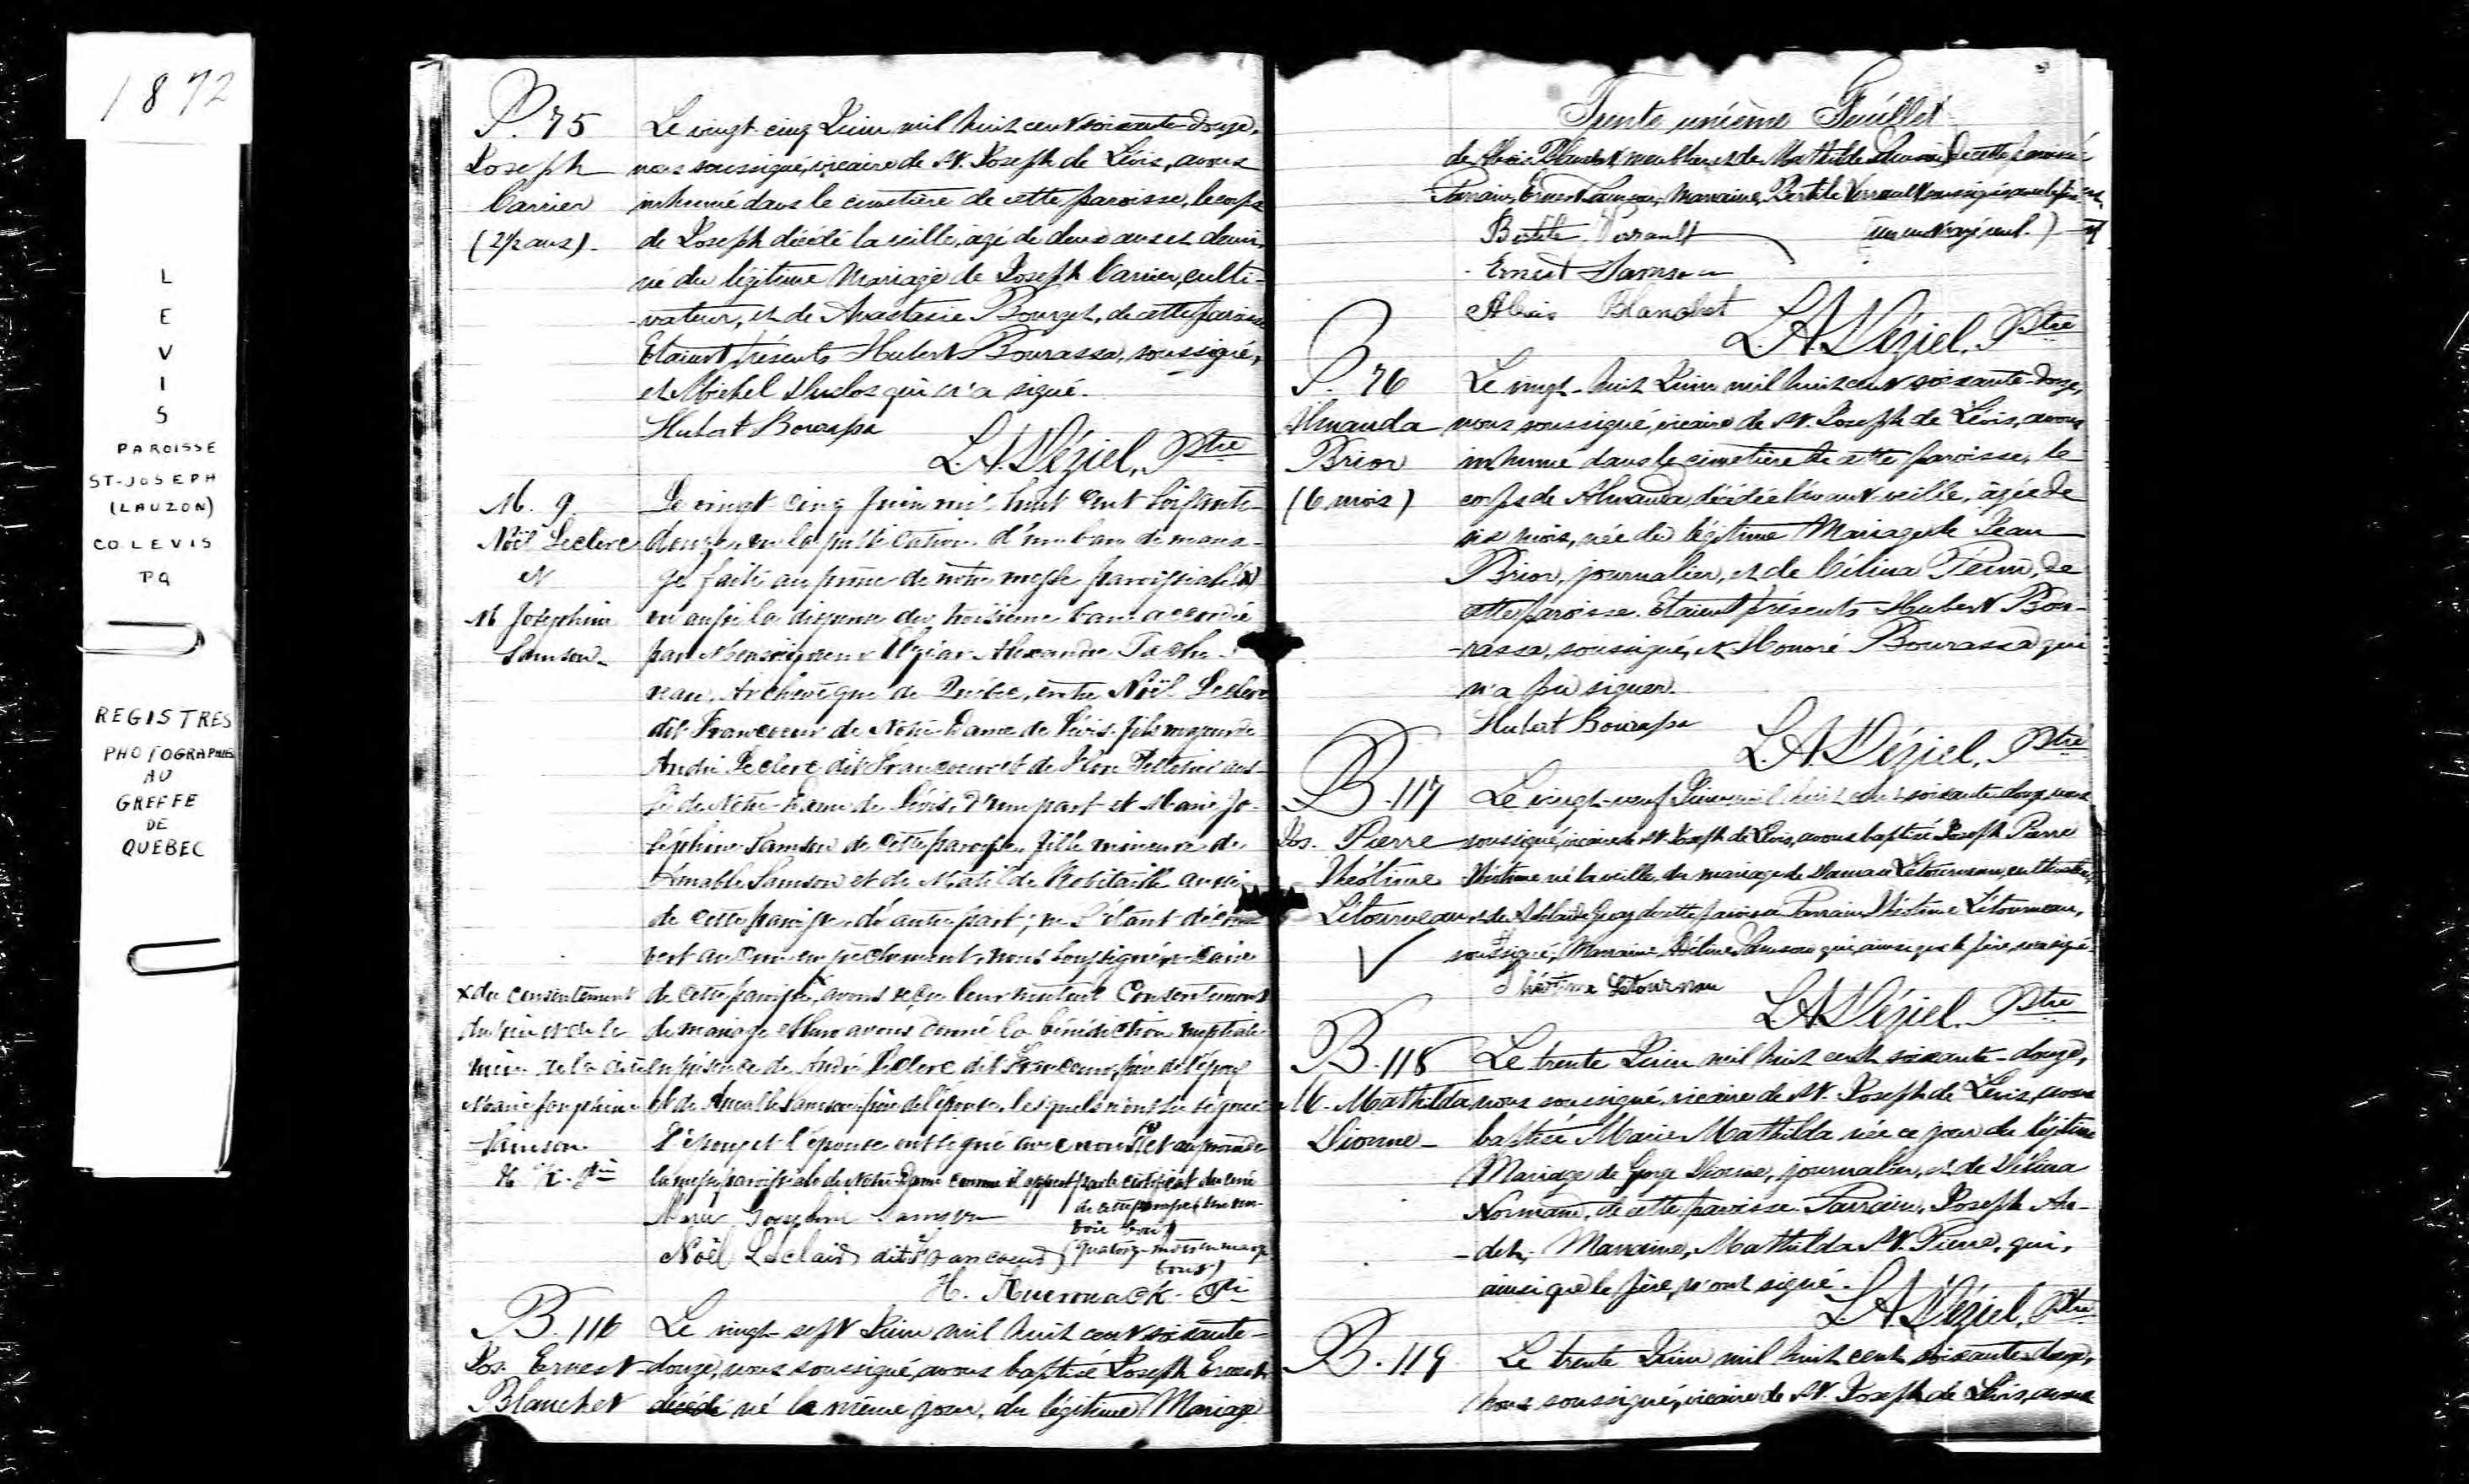 1872
L
E
V
I
S
PAROISSE
ST-JOSEPH
(LAUZON)
CO. LEVIS
PQ
REGISTRES
PHOTOGRAPHIES
AU
GREFFE
DE
QUEBEC
S. 75
Joseph
Carrier
(2½ ans).
Le vingt-cinq Juin mil huit cent soixante-douze,
nous soussigné, vicaire de St. Joseph de Lévis, avons
inhumé dans le cimetière de cette paroisse, le corps
de Joseph décédé la veille, âgé de deux ans et demi,
né du légitime Mariage de Joseph Carrier, culti-
-vateur, et de Anastasie Bourget, de cette paroisse
Etaient présents Hubert Bourassa, soussigné,
et Michel Duclos qui n'a signé.
Hubert Bourassa
L.A. Déziel, Ptre
M. 9.
Noël Leclerc
et
M Joséphine
Samson
Le vingt cinq juin mil huit cent soixante
douze, vu la publication d'un ban de maria-
ge faite au prône de notre messe paroissiale (x)
vu aussi la dispense du troisième ban accordée
par Monseigneur Elzéar Alexandre Tasche-
reau, Archevêque de Québec, entre Noël Leclerc
dit Francoeur de Notre-Dame de Lévis, fils majeur de
André Leclerc dit Francoeur et de Flore Pelletier aus-
si de Notre-Dame de Lévis, d'une part et Marie Jo-
séphine Samson de cette paroisse, fille mineure de
Amable Samson et de Matilde Robitaille aussi
de cette paroisse, d'autre part; ne s'étant décou-
vert aucun empêchement, nous soussigné, vicaire
de cette paroisse, avons reçu leur mutuel consentement
de mariage et leur avons donné la bénédiction nuptiale
en présence de André Leclerc dit Francoeur, père de l'époux
et de Amable Samson père de l'épouse, lesquels n'ont su signer
l'époux et l'épouse ont signé avec nous (x) et au prône de
la messe paroissiale de Notre-Dame comme il appert par le certificat du curé
de cette paroisse (un ren-
voi bon)
(quatorze mots en marge
bons)
x du consentement
du père et de la
mère de la dite
Marie Josephine
Samson
H. K. Ptre
Marie Josephine Samson
Noël Leclaird dit Francoeur
H. Kueronack Ptre
B. 116
Jos. Ernest
Blanchet
Le vingt-sept Juin mil huit cent soixante-
-douze, nous soussigné, avons baptisé Joseph Ernest
décédé né le même jour, du légitime Mariage
Trente unième Feuillet
de Alexis Blanchet, meublier, et de Mathilde de cette paroisse
Parrain, Ernest Samson, Marraine, Bertile Verrault soussignés avec le père
(un mot rayé nul.)
Bertile Verrault
Ernest Samson
Alexis Blanchet
L.A. Déziel, Ptre
S. 76
Almanda
Brior
(6 mois)
Le vingt-huit Juin mil huit cent soixante-douze,
nous soussigné, vicaire de St. Joseph de Lévis, avons
inhumé dans le cimetière de cette paroisse, le
corps de Almanda, décédée l'avant-veille, âgée de
six mois, née du légitime Mariage de Jean
Brior, journalier, et de Célina Périn, de
cette paroisse. Etaient présents Hubert Bou-
-rassa, soussigné, et Honoré Bourassa qui
n'a pu signer.
Hubert Bourassa
L.A. Déziel, Ptre
B. 117
Jos. Pierre
Théotime
Létourneau
Le vingt-neuf Juin mil huit cent soixante-douze, nous
soussigné, vicaire de St. Joseph de Lévis, avons baptisé Joseph Pierre
Théotime né la veille, du mariage de Damase Létourneau, cultivateur,
et de Adélaïde Guay de cette paroisse Parrain, Théotime Létourneau,
soussigné, Marraine, Adéline Samson qui, ainsi que le père, n'a signé.
Théotime Létourneau
L.A. Déziel, Ptre
B. 118
M. Mathilda
Dionne
Le trente Juin mil huit cent soixante-douze,
nous soussigné, vicaire de St. Joseph de Lévis, avons
baptisé Marie Mathilda née ce jour du légitime
Mariage de George Dionne, journalier, et de Délina
Normand, de cette paroisse. Parrain, Joseph Au-
-det, Marraine, Mathilda St. Pierre, qui,
ainsi que le père, n'ont signé.
L.A. Déziel, Ptre
B. 119
Le trente Juin mil huit cent soixante-douze,
nous soussigné, vicaire de St. Joseph de Lévis, avons